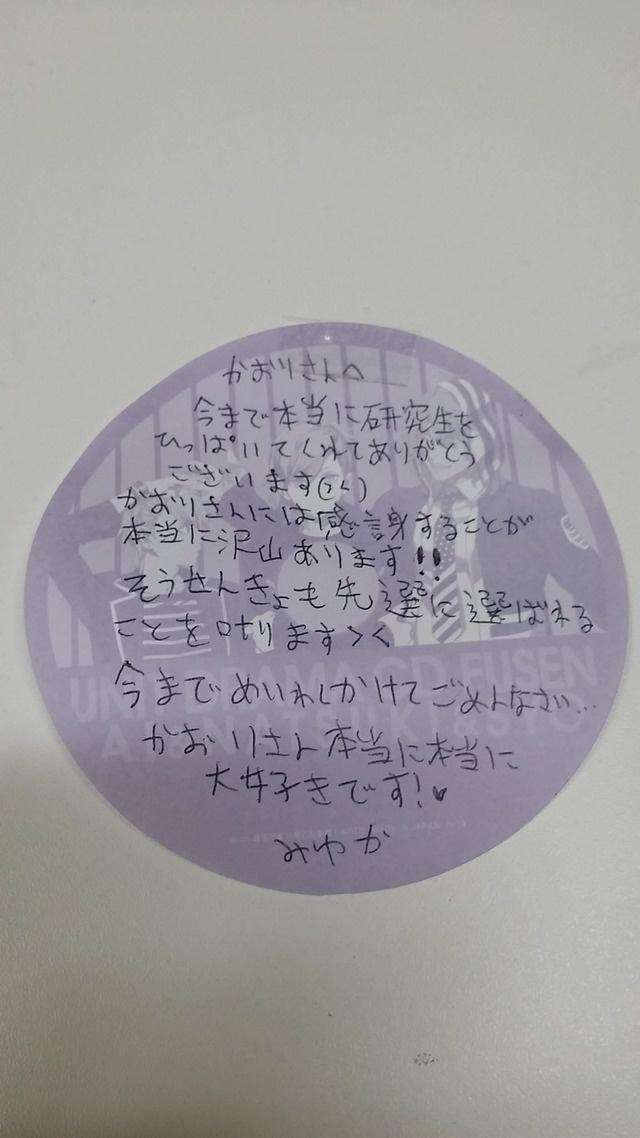 かおりさんへ
今まで本当に研究生を
ひっぱいてくれてありがとう
ございます(><)
かおりさんには感謝することが
本当に沢山あります!!
そうせんきょも先選に選ばれる
ことを叶ります><
今までめいわくかけてごめんなさい...
かおりさん本当に本当に
大好きです!♥
みゆか
UNI DRAMA CD FUSEN